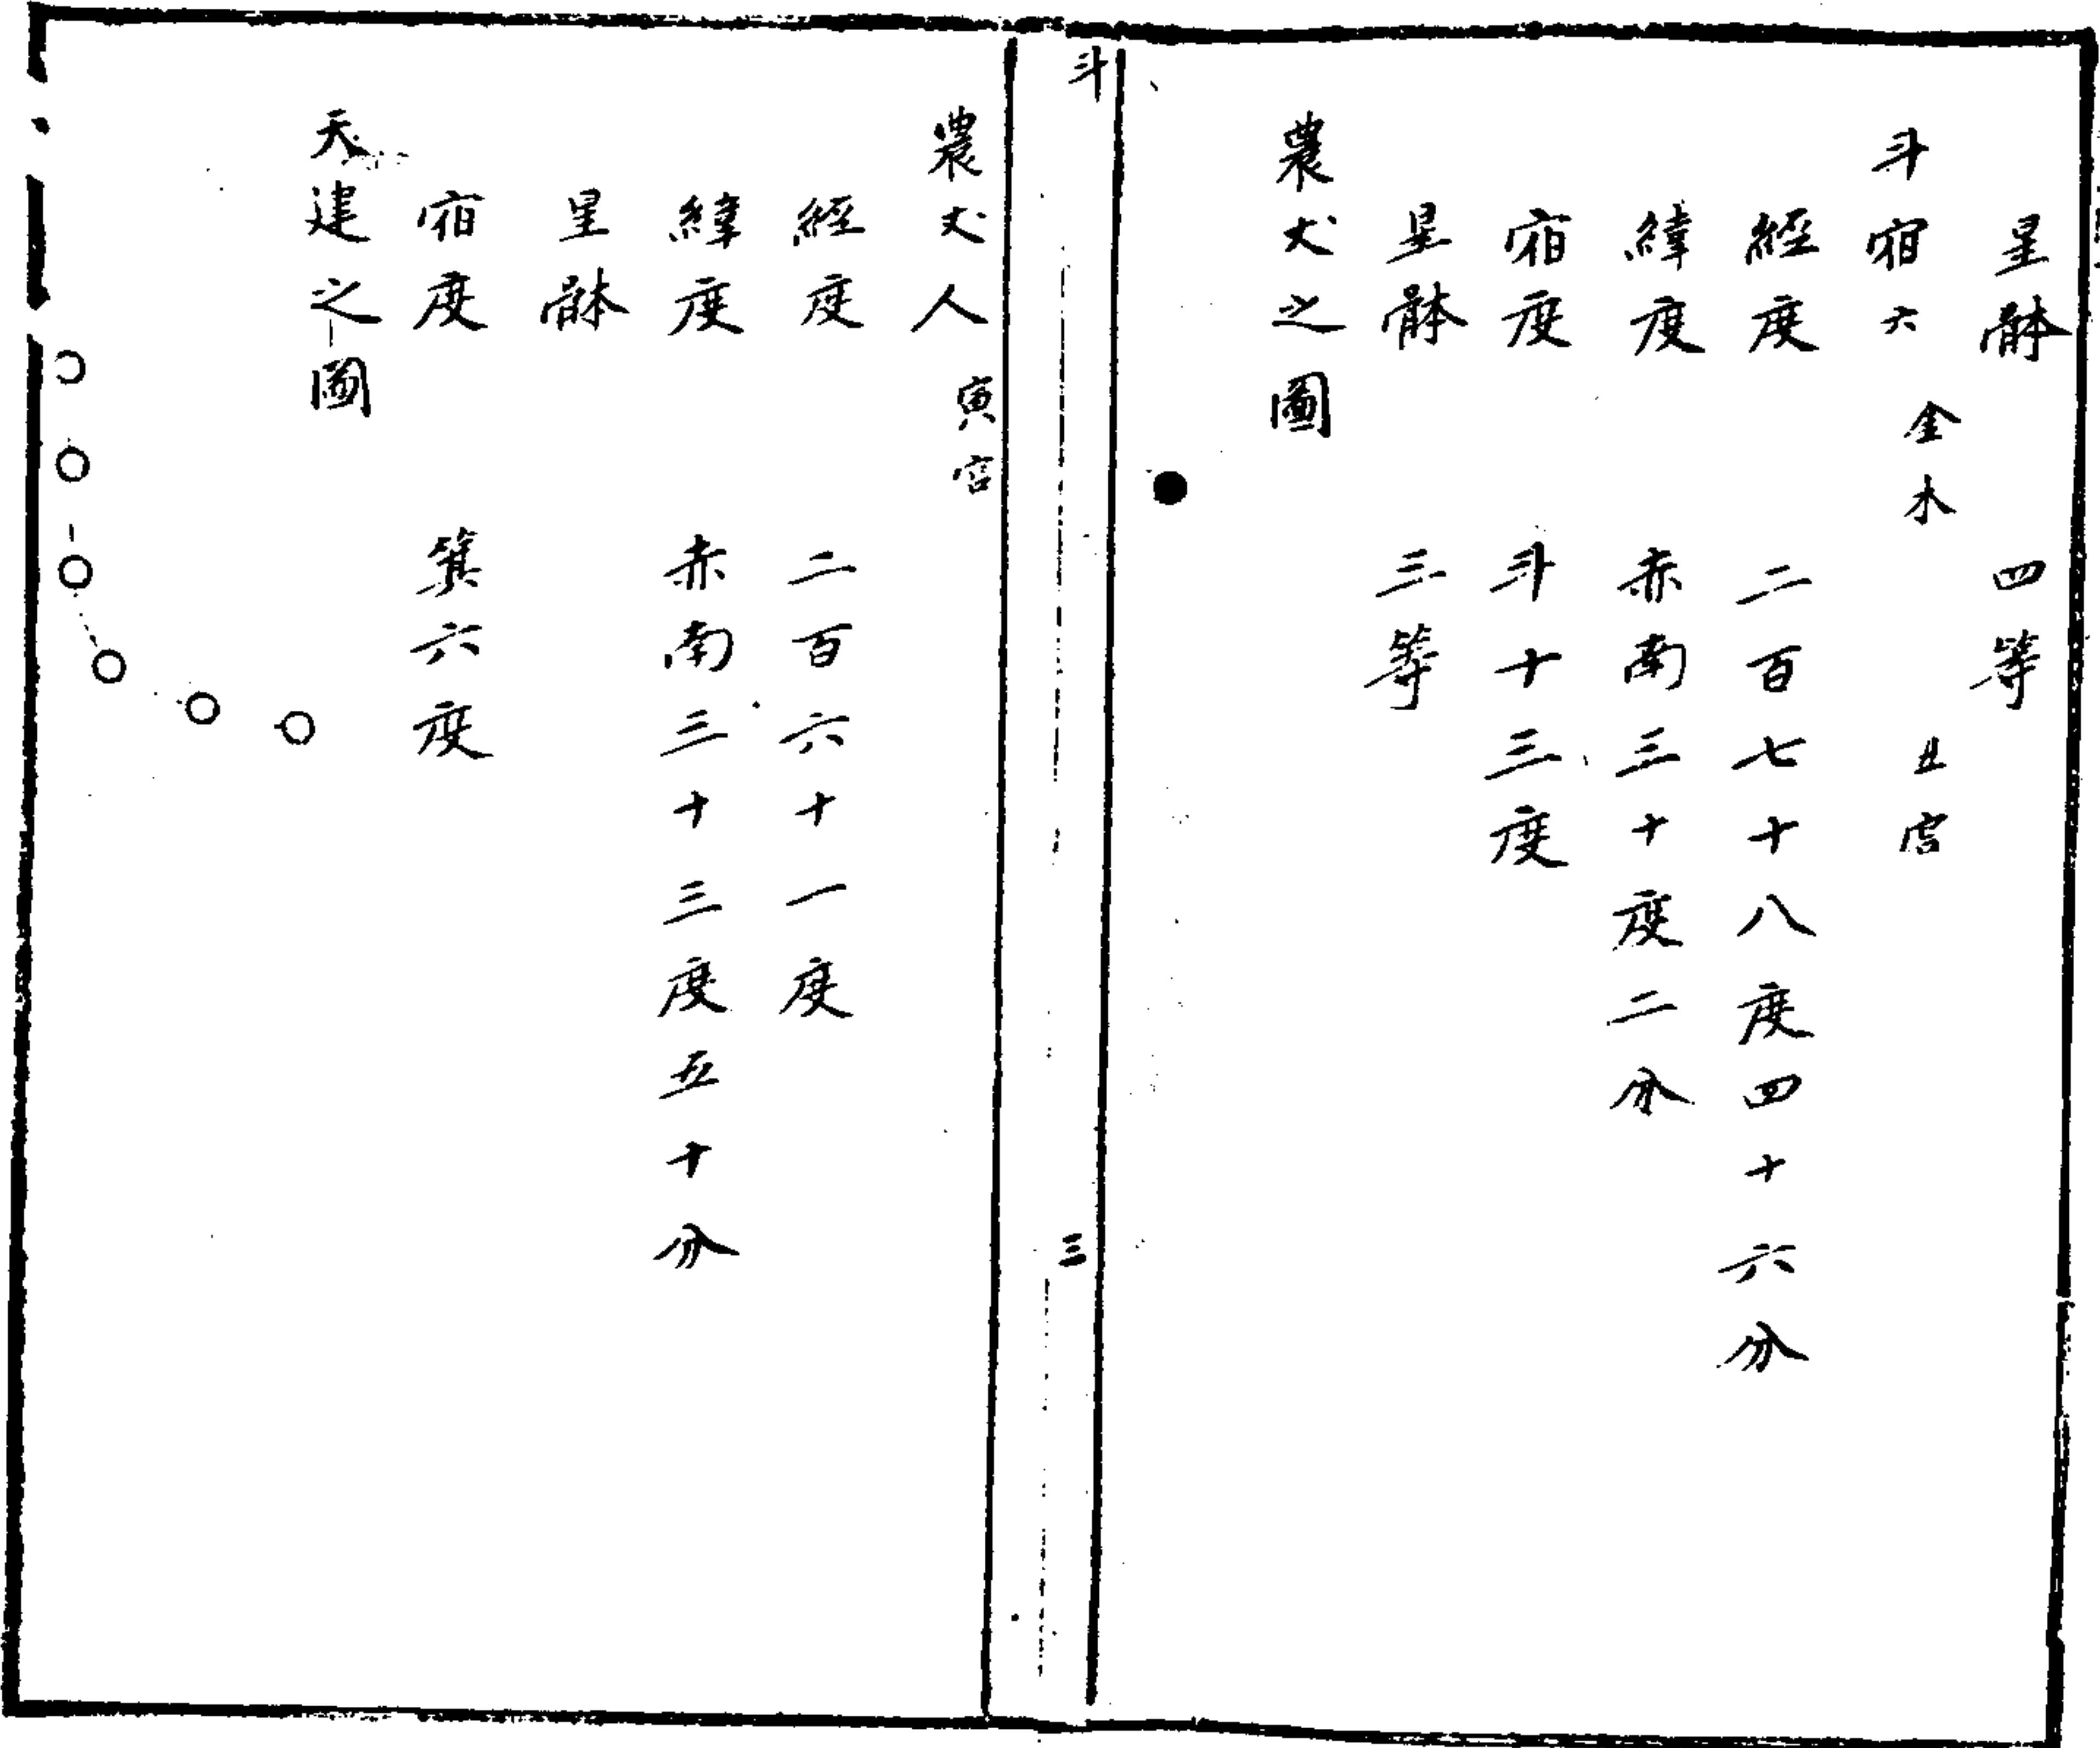 星躰　四等
斗宿六　金木　丑宮
經度　二百七十八度四十六分
緯度　赤南三十度二分
宿度　斗十三度
星躰　三等
農丈之圖
斗　三
農丈人　寅宮
經度　二百六十一度
緯度　赤南三十三度五十分
星躰
宿度　箕六度
天建之圖